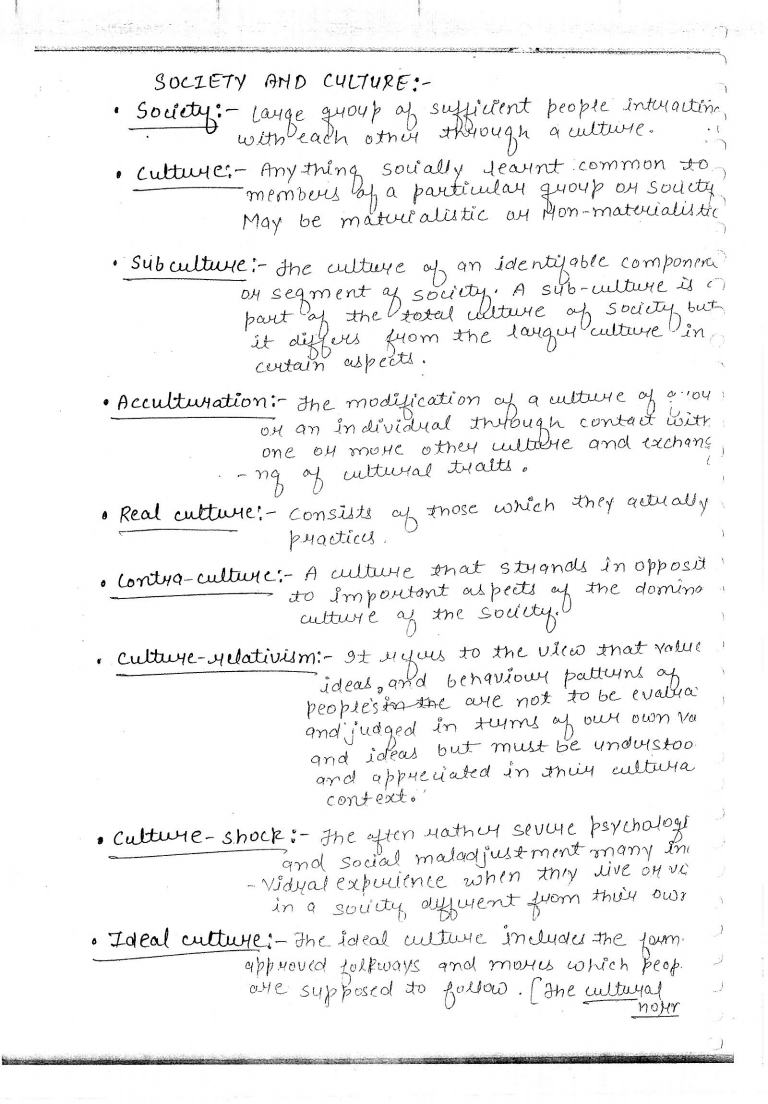 SOCIETY AND CULTURE:-
• Society:- Large group of sufficient people interactin
with each other through a culture.
• Culture:- Anything socially learnt common to
members of a particular group or Society
May be materialistic or Non-materialistic
• Subculture:- The culture of an identifable componen
or segment of society. A sub-culture is a
part of the total culture of society but
it differs from the larger culture in
certain aspects.
• Acculturation:- The modification of a culture of a
or an individual through contact with
one or more other culture and exchang
-ng of cultural traits.
• Real culture:- Consists of those which they actually
practices.
• Contra-culture:- A culture that strands in opposit
to important aspects of the domina
culture of the Society.
• Culture-relativism:- It refers to the view that value
ideas, and behaviour patterns of
people's in the are not to be evalua
and judged in terms of our own va
and ideas but must be understoo
and appreciated in their cultura
context.
• Culture-shock:- The often rather severe psychologi
and social maladjustment many in
-vidual experience when they live or vi
in a society different from their own
• Ideal culture:- The ideal culture includes the form
approved folkways and mores which peop
are supposed to follow. [The cultural
norr